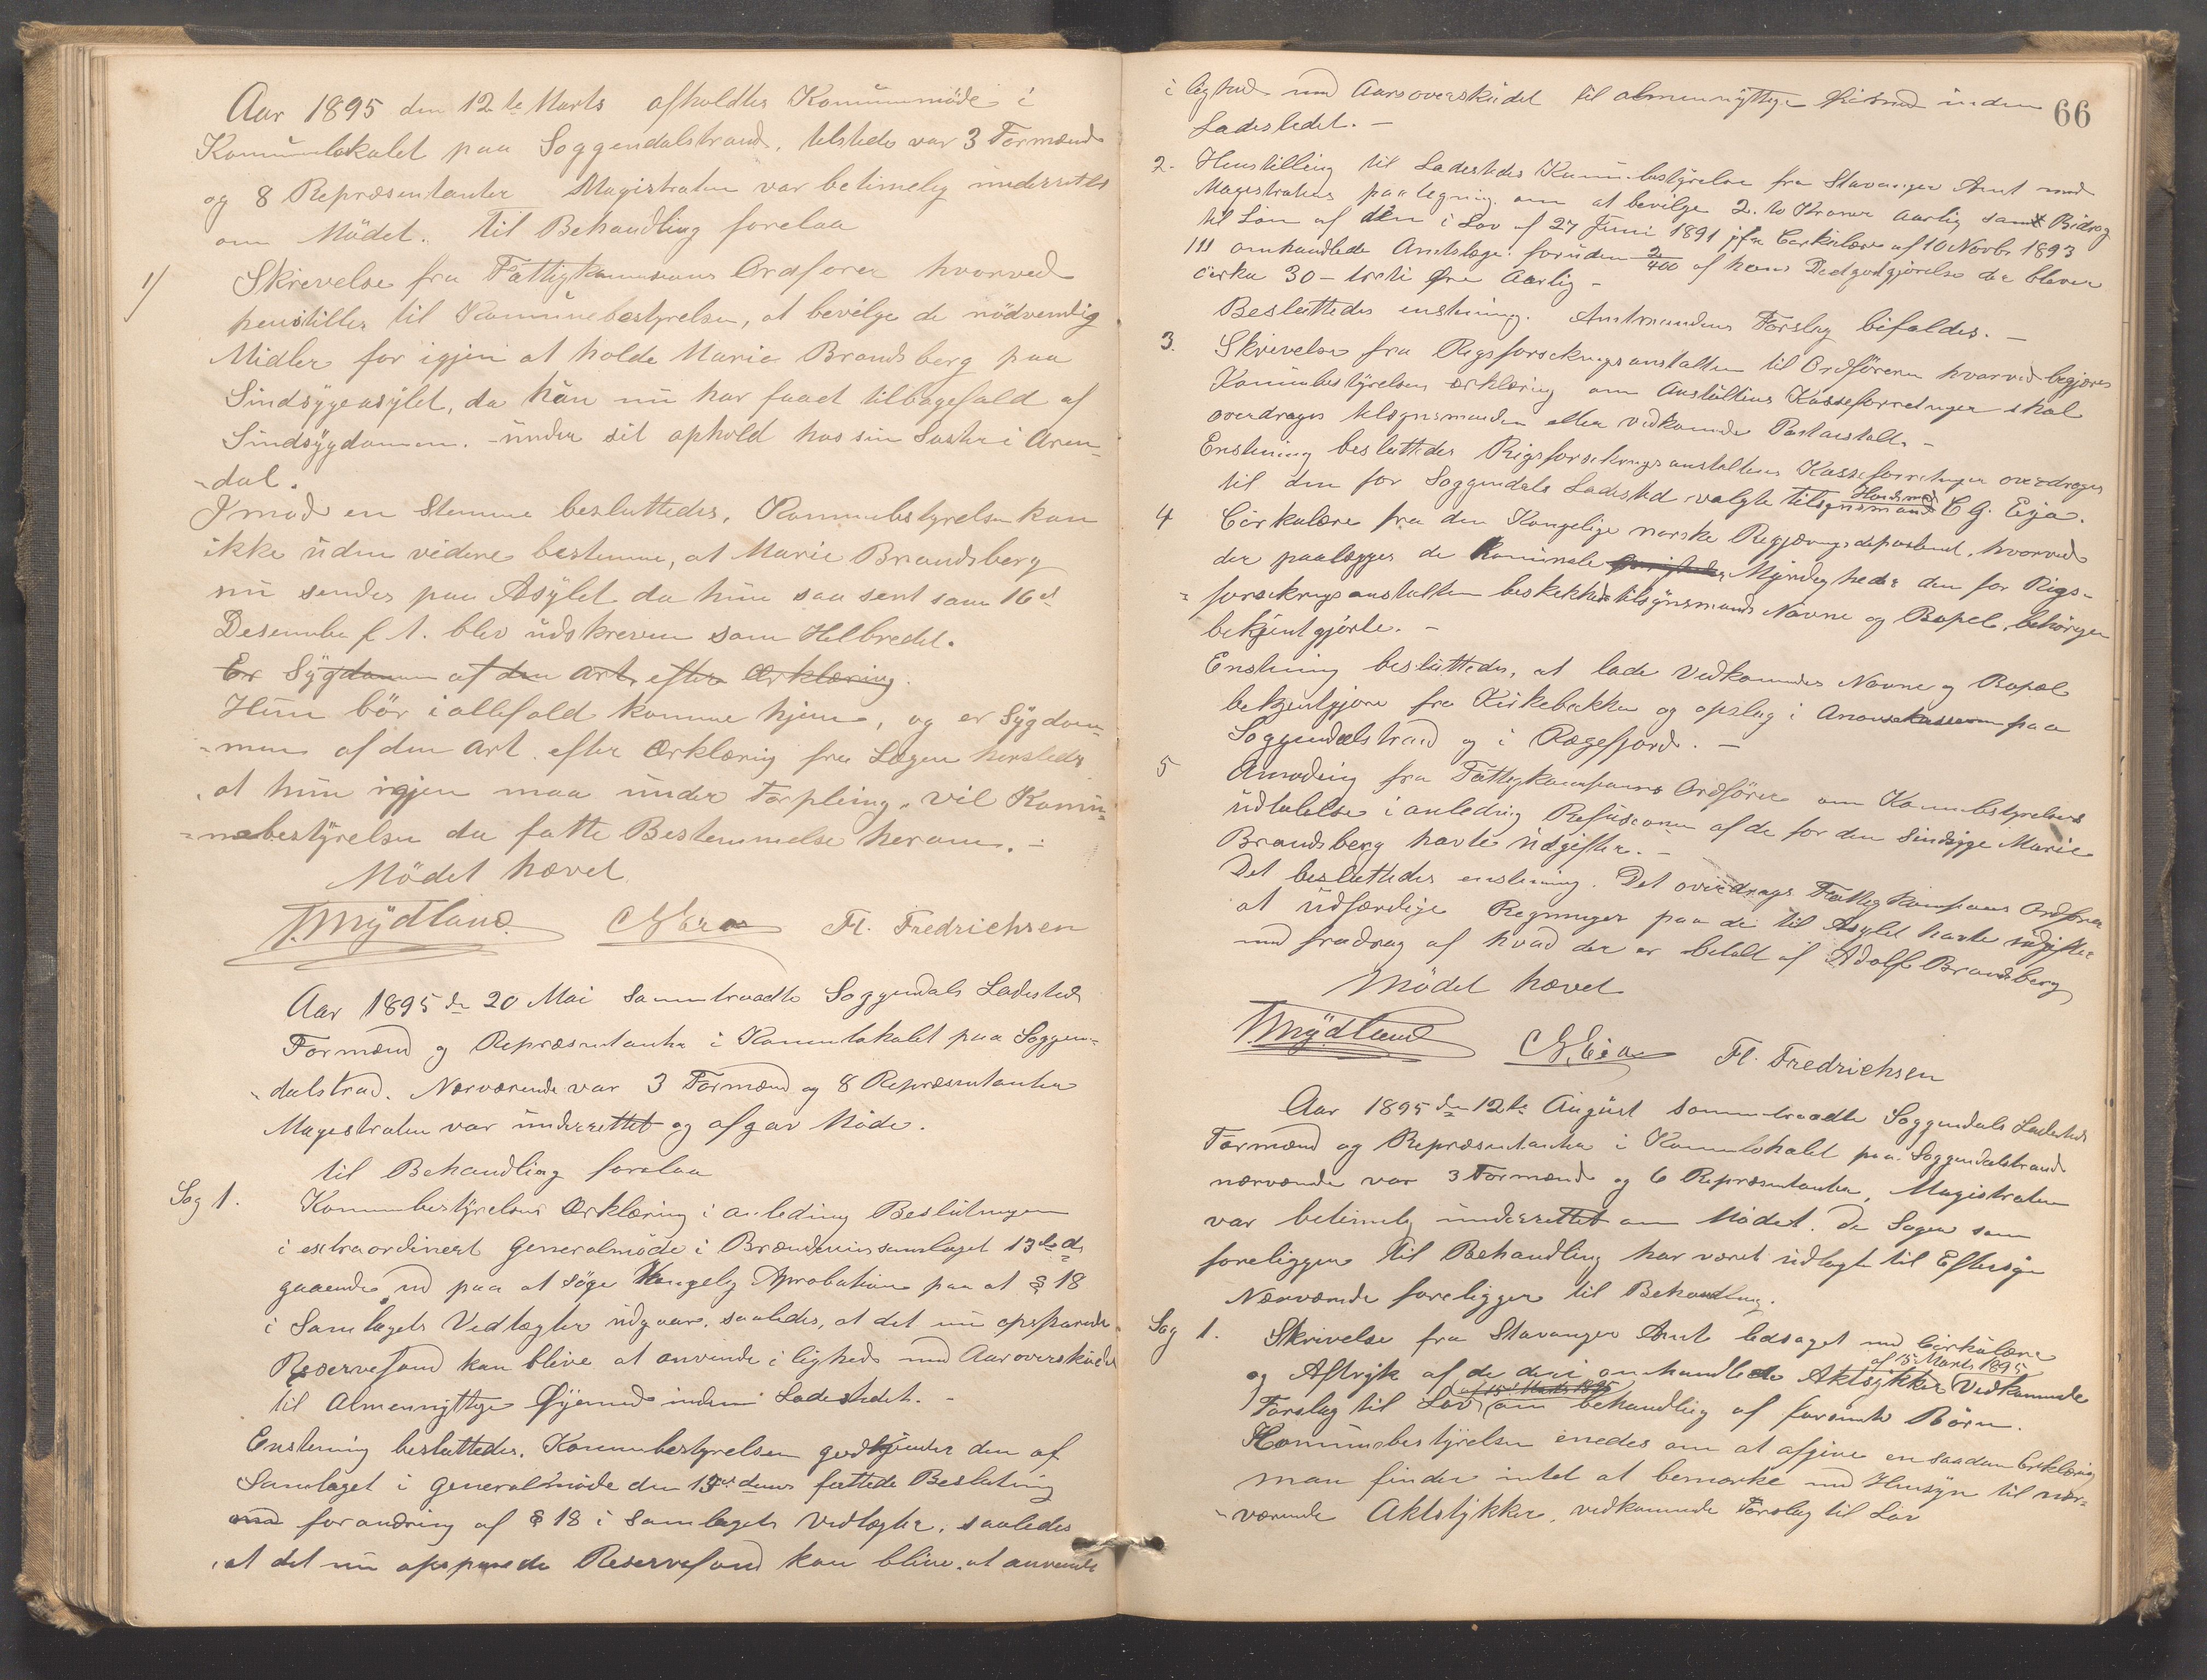 Aar 1895 den 12te Marts afholdtes Komünemöde i
Komünelokalet paa Soggendalstrand, tilstede var 3 Formænd
og 8 Repræsentanter Magistraten var betimelig ünderrettet
om Mödet. Til Behandling forelaa
1/ Skrivelse fra Fattigkommissions Ordförer hvorved
henstilles til Komünebestyrelsen, at bevilge de nödvendig
Midler for igjen at holde Marie Brandsberg paa
Sindsÿgeasÿlet, da hün nü har faaet tilbagefald af
Sindsÿgdommen. ünder sit ophold hos sin Søster i Aren-
-dal.
Imod en Stemme besluttedes, Kommunebestyrelsen kan
ikke üden videre bestemme, at Marie Brandsberg
nü sendes paa Asÿlet da hün saa sent som 16de
Desember f. A. blev üdskreven som Helbredet.
Er Sÿgdommen af den art, efter Erklæring.
Hün bör iallefald komme hjem, og er Sÿgdom-
-men af den Art efter Erklæring fra Lægen hersteds
at hün igjen maa ünder Forpleining, vil Komü-
-nebestÿrelsen da fatte Bestemmelse herom. -
Mödet hævet
T. Mÿdland CG Eia Fl. Fredrichsen
Aar 1895 den 20 Mai Sammentraadte Soggendals Ladesteds
Formænd og Repræsentanter i Komunelokalet paa Soggen-
-dalstrand. Nærværende var 3 Formænd og 8 Repræsentanter
Magestraten var ünderrettet og afgav Möde.
til Behandling forelaa
Sag 1. Komunebestÿrelsens Erklæring i anledning Beslutningen
i extraordinært Generalmöde i Brændevinssamlaget 13de ds
gaaende ud paa at söge Kongelig Aprobation paa at § 18
i Samlagets Vedtægter udgaar, saaledes, at det nü opsparede
Reservefond kan blive at anvende i lighed med Aarsoverskudet
til Almennyttige Öÿemed inden Ladestedet. -
Enstemig besluttedes. Komunebestyrelsen godkjender den af
Samlaget i Generalmöde den 13de dennes fattede Beslutning
forandring af § 18 i Samlagets Vedtægter, saaledes
at det nü opsparede Reservefond kan blive at anvende
66
i lighed med Aarsoverskudet til almennyttige Öiemed inden
Ladestedet. -
2. Henstilling til Ladestedes Komunebestÿrelse fra Stavanger Amt med
Magestratens paategning om at bevilge 2. to Kroner aarlig samt Bidrag
til Lön af den i Lov af 27 Juni 1891 jfr Cirkulære af 10 Novbr 1893
omhandlede Amtslæge. foruden 2/400 af hans Diætgodtgjörelse der bliver
cirka 30 - treti Öre Aarlig -
Besluttedes enstemig. Amtmandens Forslag bifaldes. -
3. Skrivelse fra Rigsforsikringsanstalten til Ordföreren hvorved begjæres
Komunebestÿrelsens erklæring om Anstaltens Kasseforretninger skal
overdrages tilsynsmanden eller vedkommende Postanstalt. -
Enstemig besluttedes Rigsforsikringsanstaltens Kasseforretninger overdrages
til den for Soggendals Ladested valgte tilsynsmand Handelsmand C G. Eja.
4 Cirkulære fra den Kongelige norske Regjeringsdepartement, hvorved
der paalægges de Komunale Mÿndigheder den for Rigs-
-forsikringsanstalten beskikkede tilsÿnsmands Navne og Bopel, behörigen
bekjentgjorte. -
Enstemig besluttedes, at lade Vedkommendes Navne og Bopæl
bekjentgjöre fra Kirkebakken og opslag i paa
Soggendalstrand og i Rægefjord. -
5 Anmodning fra Fattigkomissionens Ordförer om Komunebestyrelsens
üdtalelse i anledning Refusionen af de for den Sindsÿge Marie
Brandsberg havte üdgifter. -
Det besluttedes enstemmig. Det overdrages Fattigkomissionens Ordförer
at üdfærdige Regninger paa de til Asylet havte üdgifter
med fradrag af hvad der er betalt af Adolf Brandsberg
Mödet hævet
T. Mÿdland CG Eia Fl. Fredrichsen
Aar 1895 den 12te August sammentraadte Soggendals Ladesteds
Formænd og Repræsentanter i Komunelokalet paa Soggendalstrand
nærværende var 3 Formænd og 6 Repræsentanter, Magistraten
var betimelig ünderrettet om Mödet. De Sager som
foreligger til Behandling har været üdlagt til Eftersÿn
Nærværende foreligger til Behandling.
Sag 1. Skrivelse fra Stavanger Amt ledsaget med Cirkülære
af 15 Marts 1895
og Aftrÿk af de deri omhandlede Aktsÿkker Vedkommende
af 15 Marts 1895
Forslag til Lov om behandling af forsömte Börn.
Komünebestÿrelsen enedes om at afgive en saadan Erklæring
man finder intet at bemærke med Hensÿn til nær-
-værende Aktstÿkker, vedkommende Forslag til Lov